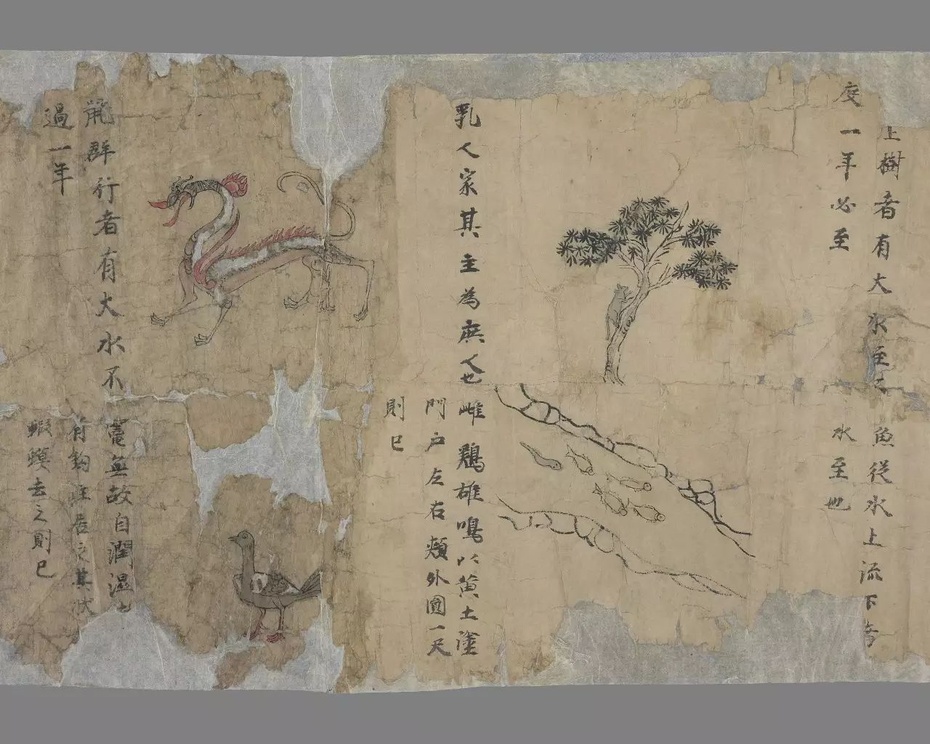 上樹者有大水至
度一年必至
乳人家其主為庶人也
群行者有大水不
過一年
魚從水上流下者
水至也
雌鷄雄鳴以黄土塗
門戶左右頰外圓一尺
則已
竈無故自潤濕
鈎注居之其狀
蝦蟆去之則已